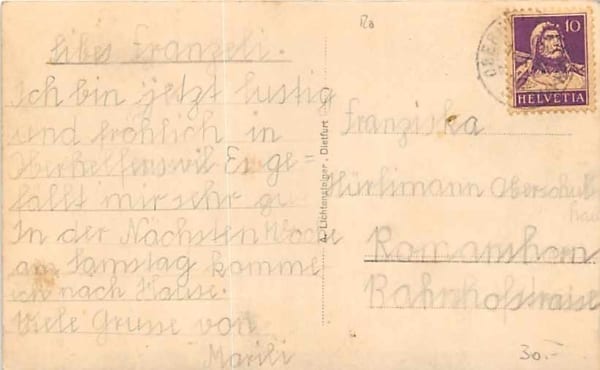 libes Franzeli.
Ich bin jetzt lustig
und fröhlich in
Oberhelfenswil Es ge=
fällt mir sehr gu
In der Nächsten Woche
am Samstag komme
ich nach Hause.
Viele Grüsse von
Marili
A. Lichtensteiger, Dietfurt
10
HELVETIA
Franziska
Hürlimann Oberschul
Romanshorn
Bahnhofstrasse
30.-